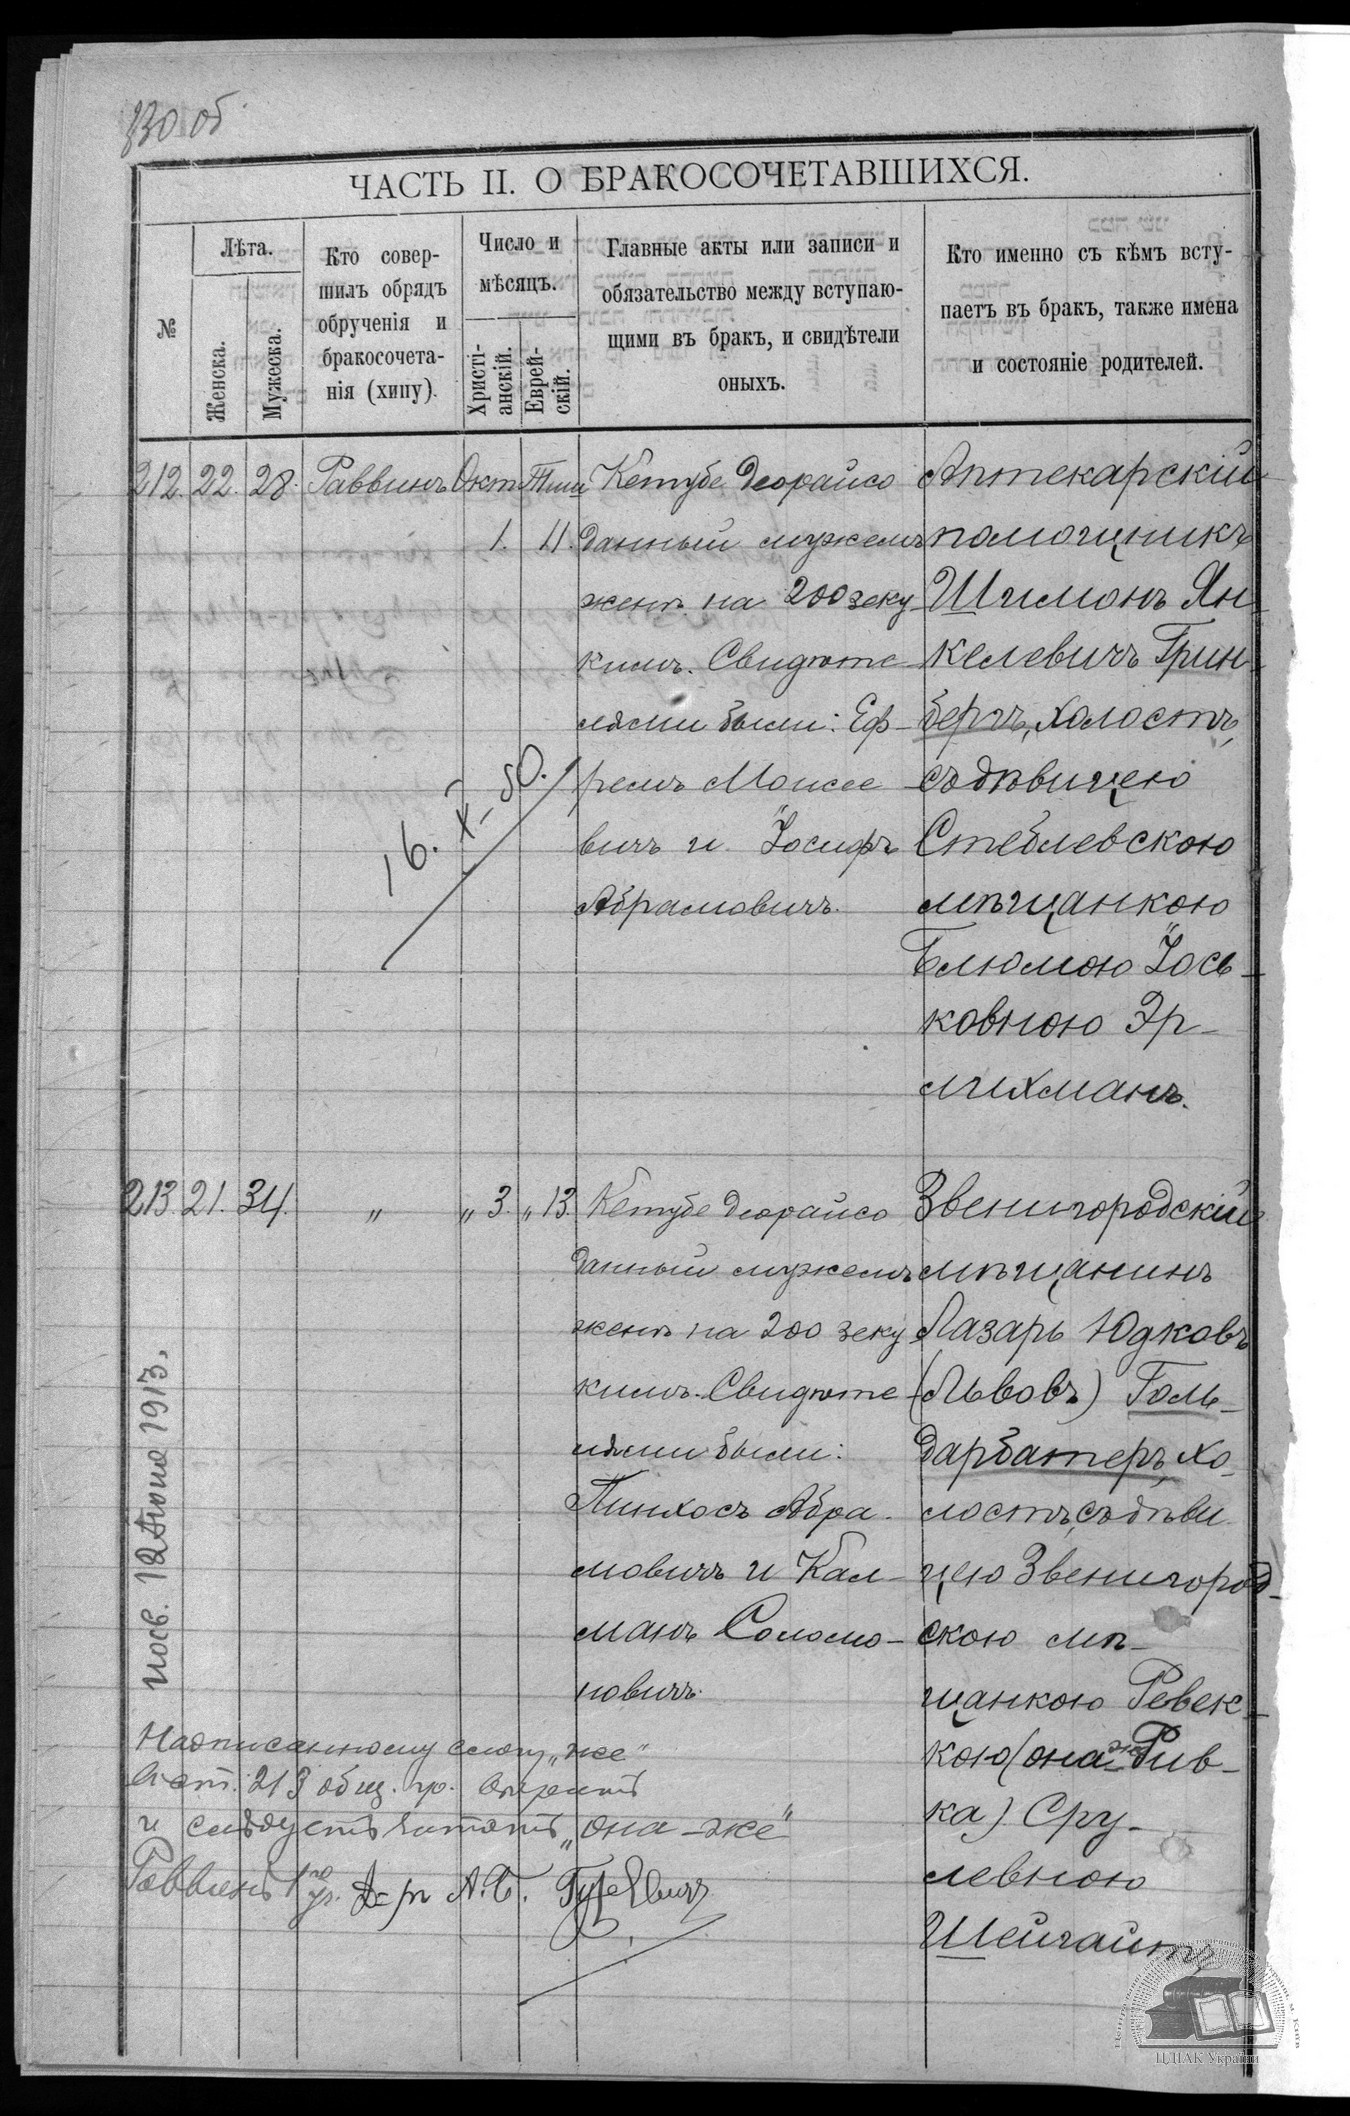 330 об
ЧАСТЬ II. О БРАКОСОЧЕТАВШИХСЯ.
№
Лѣта.
Женска.
Мужеска.
Кто совер-
шилъ обрядъ
обрученія и
бракосочета-
нія (хипу).
Число и
мѣсяцъ.
Христі-
анскій.
Еврей-
скій.
Главные акты или записи и
обязательство между вступаю-
щими въ бракъ, и свидѣтели
оныхъ.
Кто именно съ кѣмъ всту-
паетъ въ бракъ, также имена
и состояніе родителей.
212. 22. 28. Раввинъ Окт Тиш
1. 11.
Кетубе Деорайсо
данный мужемъ
женѣ на 200 зеку
кимъ. Свидѣте
лями были: Еф-
ремъ Моисее
вичъ и Іосифъ
Абрамовичъ.
Аптекарскій
помощникъ
Шимонъ Ян-
келевичъ Грин-
бергъ, холостъ,
съ дѣвицею
Стеблевскою
мѣщанкою
Блюмою Іось-
ковною Эр-
лихманъ.
16. X- 50.
213. 21. 34. „ „ 3. „ 13.
Кетубе Деорайсо
данный мужемъ
женѣ на 200 зеку
кимъ. Свидѣте
лями были:
Пинхосъ Абра-
мовичъ и Кал-
манъ Соломо-
новичъ.
Звенигородскій
мѣщанинъ
Лазарь Юдковъ
(Львовъ) Голь-
дарбатеръ, хо-
лостъ, съ дѣви
цею Звенигород-
скою мѣ-
щанкою Ревек-
кою (она же Рив-
ка) Сру-
левною
Шейгайтъ
12 Іюня 1913.
Надписанному слову „же“
въ ст. 213 общ. гр. вѣрить
и слѣдуетъ читать „она-же“
Раввинъ 1го уч. Д-ръ А.Б. Гуревичъ
ЦДІАК України